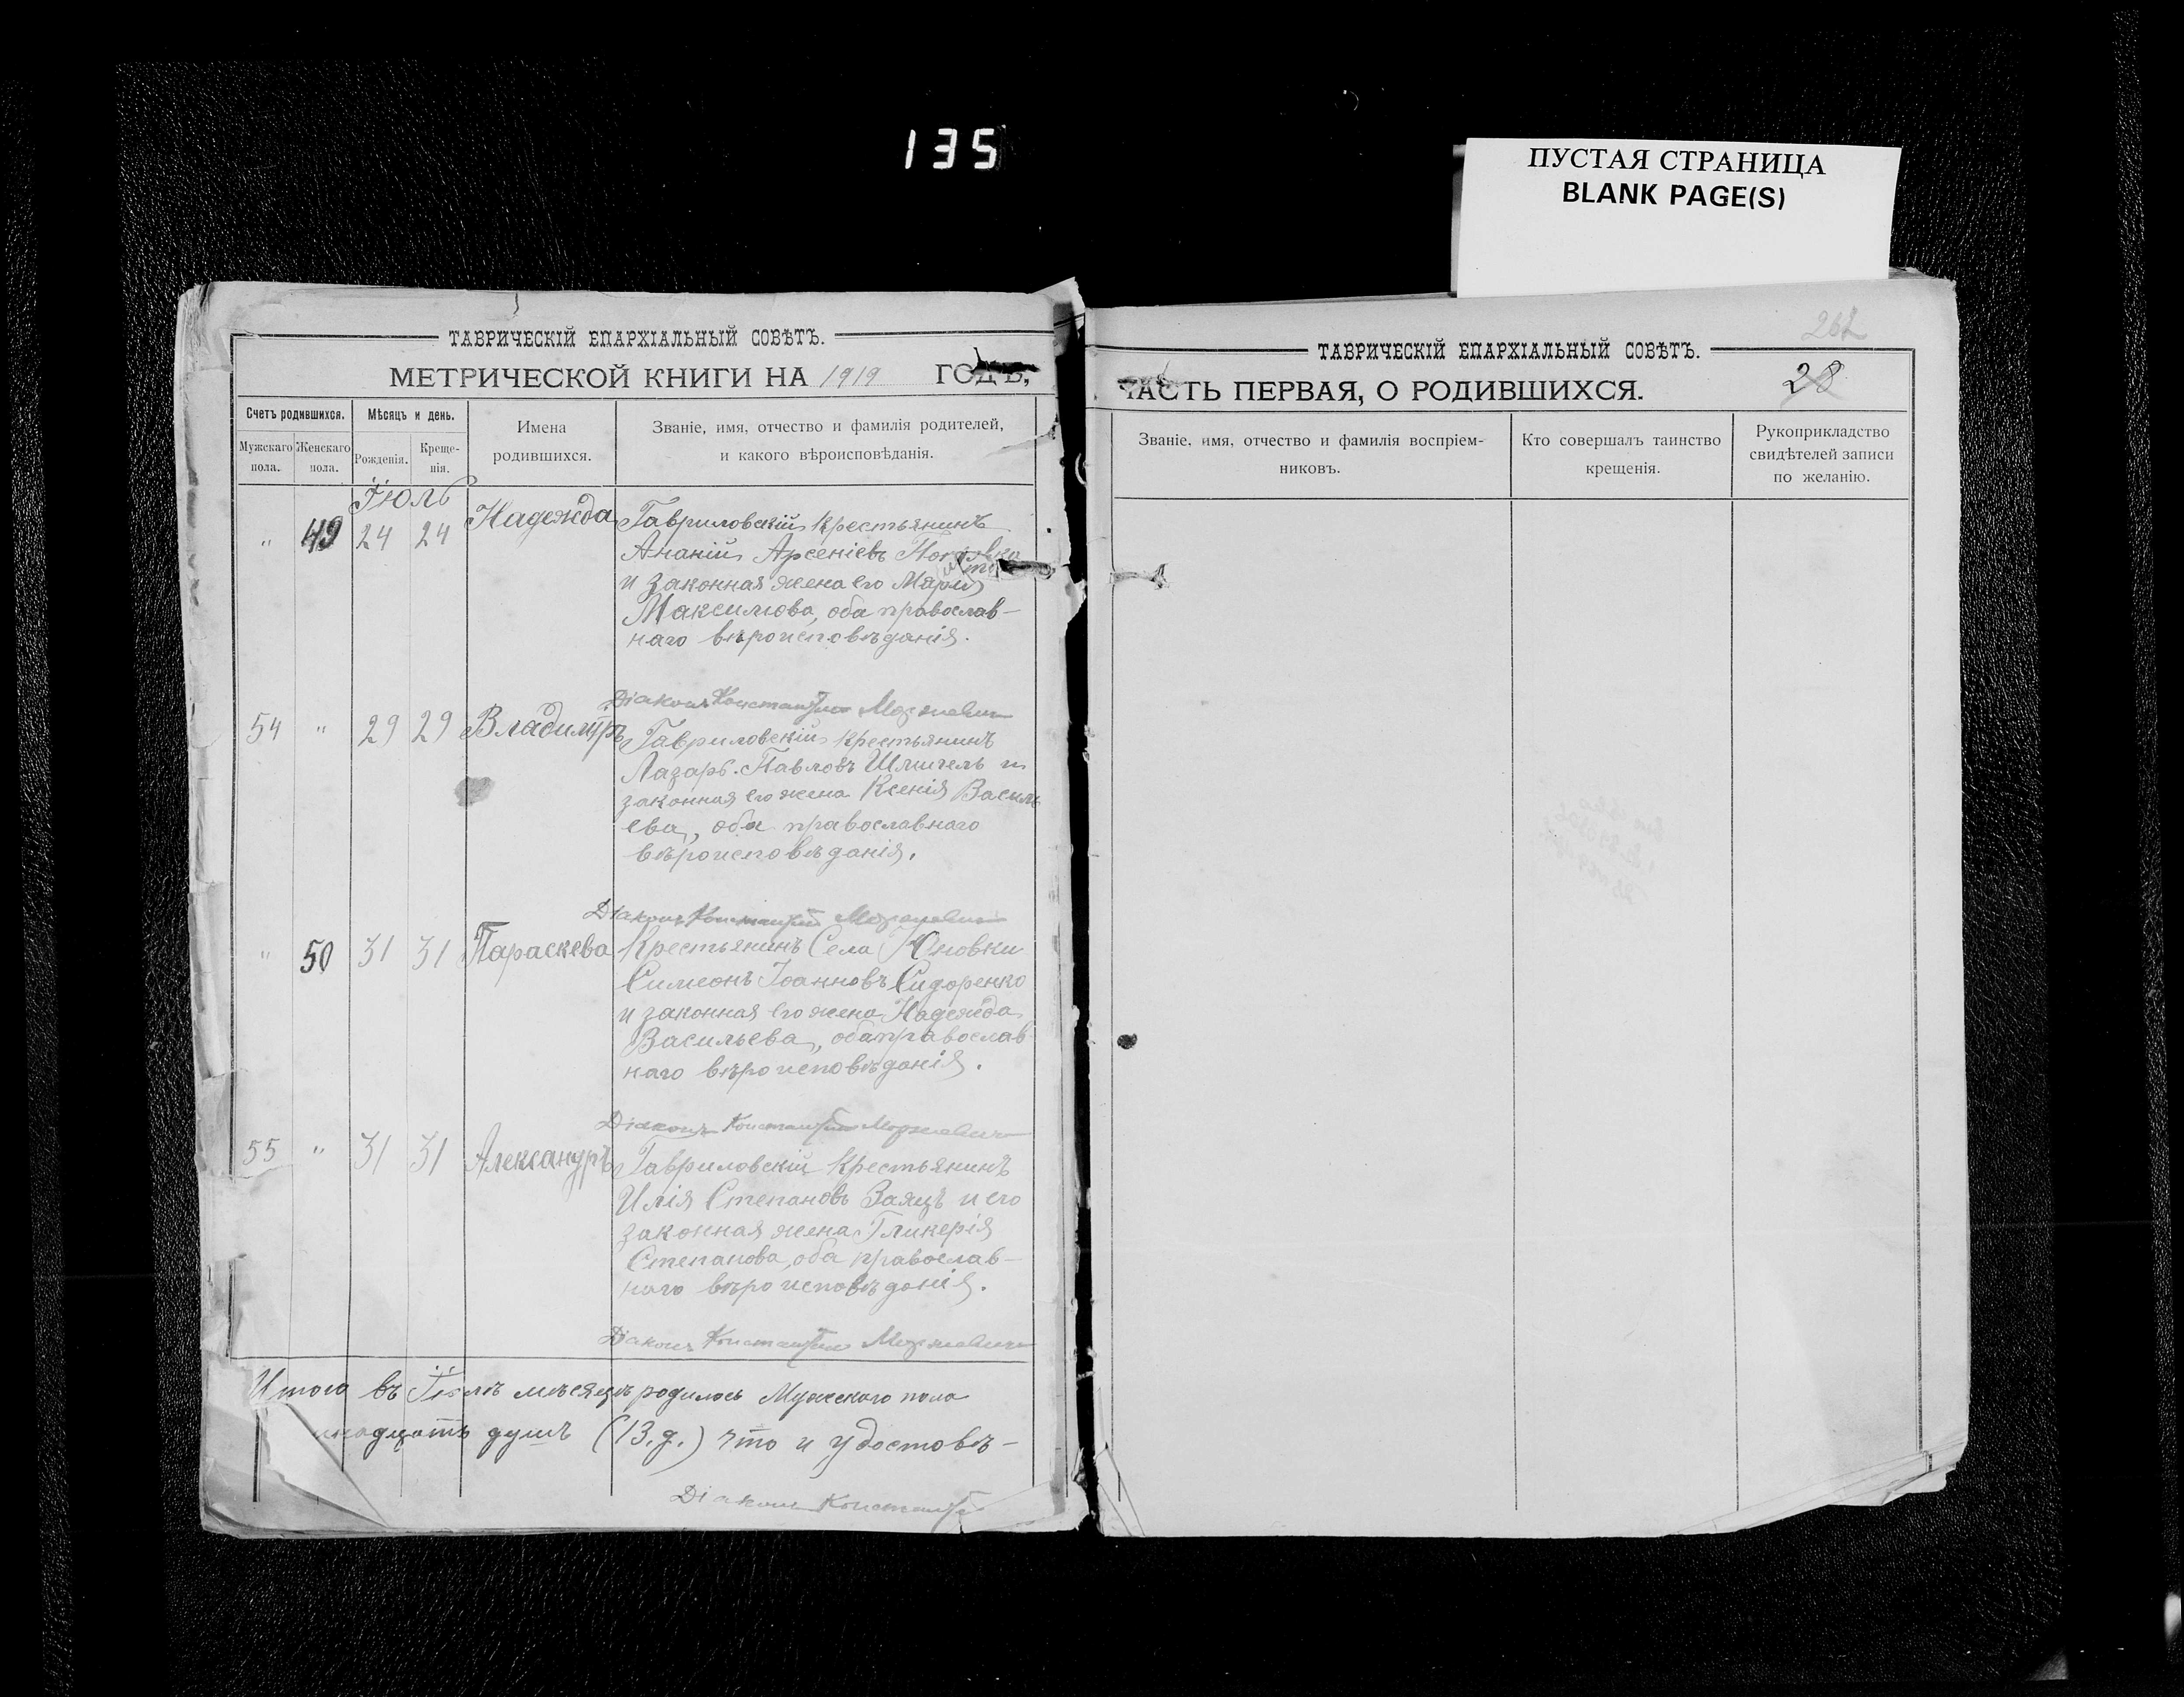 135
ПУСТАЯ СТРАНИЦА
BLANK PAGE(S)
ТАВРИЧЕСКІЙ ЕПАРХІАЛЬНЫЙ СОВѢТЪ.
МЕТРИЧЕСКОЙ КНИГИ НА 1919 ГОДЪ,
Счетъ родившихся.
Мѣсяцъ и день.
Имена родившихся.
Званіе, имя, отчество и фамилія родителей,
и какого вѣроисповѣданія.
Мужскаго пола.
Женскаго пола.
Рожденія.
Креще-
нія.
Іюль
" 49 24 24 Надежда Гавриловскій крестьянинъ
Ананій Арсеніевъ
и законная жена его Марія
Максимова, оба православ-
наго вѣроисповѣданія.
Діаконъ Константинъ
54 " 29 29 Владиміръ Гавриловскій крестьянинъ
Лазарь Павловъ Шмигель и
законная его жена Ксенія Василь
ева, оба православнаго
вѣроисповѣданія.
Діаконъ Константинъ
" 50 31 31 Параскева Крестьянинъ Села
Симеонъ Іоанновъ Сидоренко
и законная его жена Надежда
Васильева, оба православ
наго вѣроисповѣданія.
Діаконъ Константинъ
55 " 31 31 Александръ Гавриловскій крестьянинъ
Илія Степановъ Заяцъ и его
законная жена Гликерія
Степанова, оба православ-
наго вѣроисповѣданія.
Діаконъ Константинъ
Итого въ Іюлѣ мѣсяцѣ родилось Мужескаго пола
надцать душъ (13.д.) что и удостовѣ-
Діаконъ Константинъ
262
ТАВРИЧЕСКІЙ ЕПАРХІАЛЬНЫЙ СОВѢТЪ.
28
ЧАСТЬ ПЕРВАЯ, О РОДИВШИХСЯ.
Званіе, имя, отчество и фамилія воспріем-
никовъ.
Кто совершалъ таинство
крещенія.
Рукоприкладство
свидѣтелей записи
по желанію.